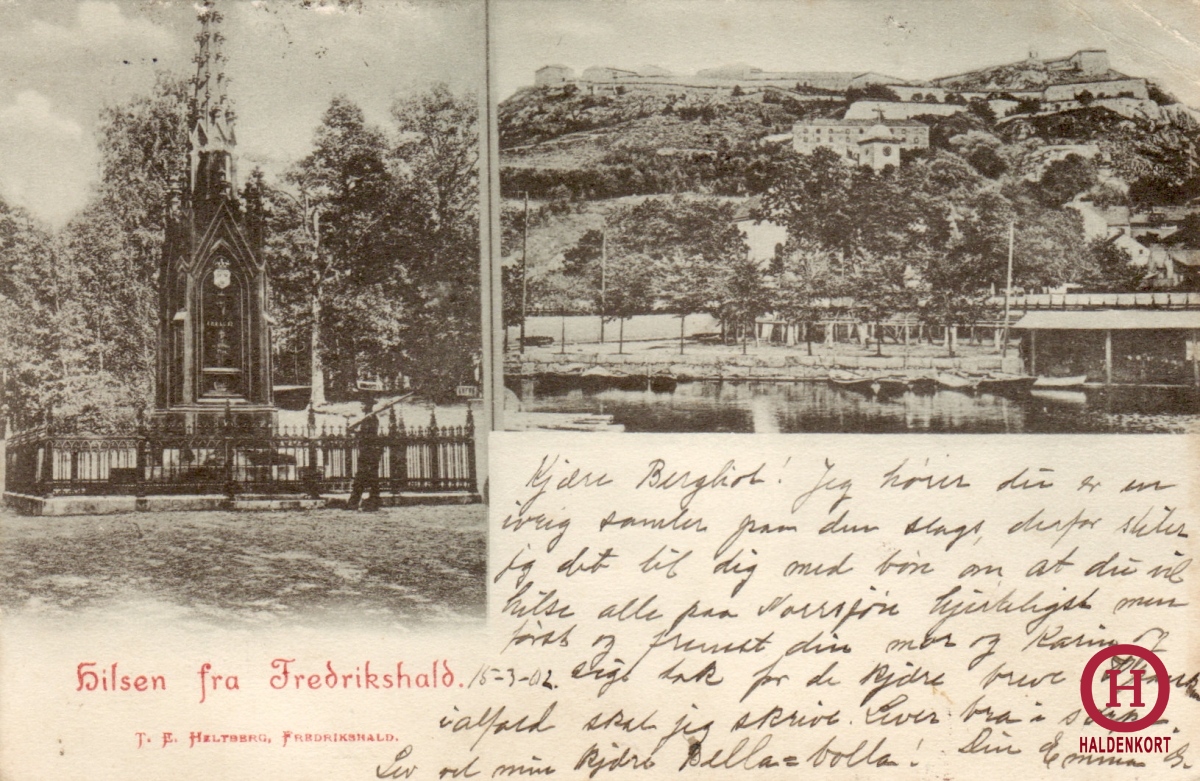 Kjære Bergliot! Jeg hører du er en
ivrig samler paa den slags, derfor skiler
jeg det til dig med bøn om at du vil
hilse alle paa Norrsjön hjerteligst men
først og fremst din mor og Karin og
sige tak for de kjære breve
ialfald skal jeg skrive. Lever bra i
Lev vel min kjære Bella=bolla! Din Emma G.
Hilsen fra Fredrikshald. 15-3-02.
T. E. Heltberg, Fredrikshald.
H
HALDENKORT